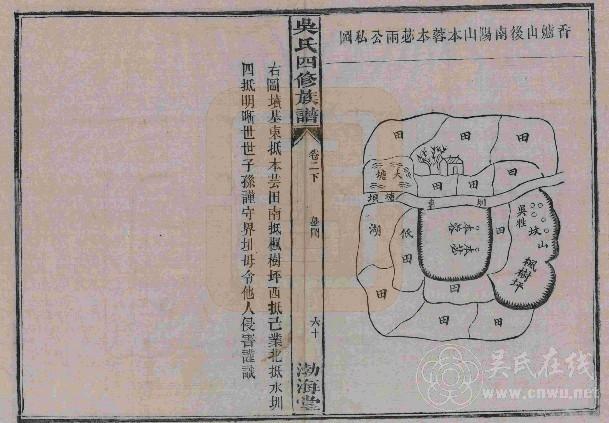 香爐山後南陽山本蓉本苾兩公私圖
田
田
田
田
田
大塘
田
田
田
塘垻
圳
吳姓
坟山
楓樹坪
湖
低田
本蓉
本苾
田
田
田
田
田
田
吳氏四修族譜
卷二下
墓圖
六十
渤海堂
右圖墳基東抵本芸田南抵楓樹坪西抵己業北抵水圳
四抵明晰世世子孫謹守界址毋令他人侵害謹識
吴氏在线
www.cnwu.net